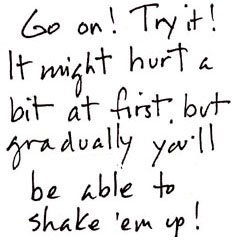 Go on! Try it!
It might hurt a
bit at first, but
gradually you'll
be able to
shake 'em up!